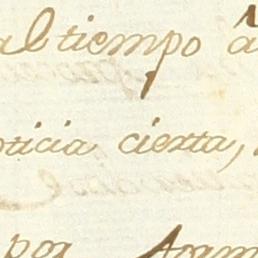 al tiempo a
oticia cierta,
por